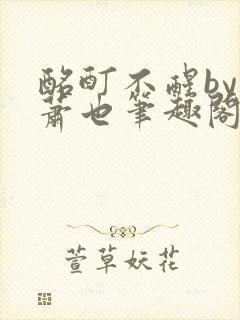 酩酊不醒by
萧也筆趣閣
萱草妖花